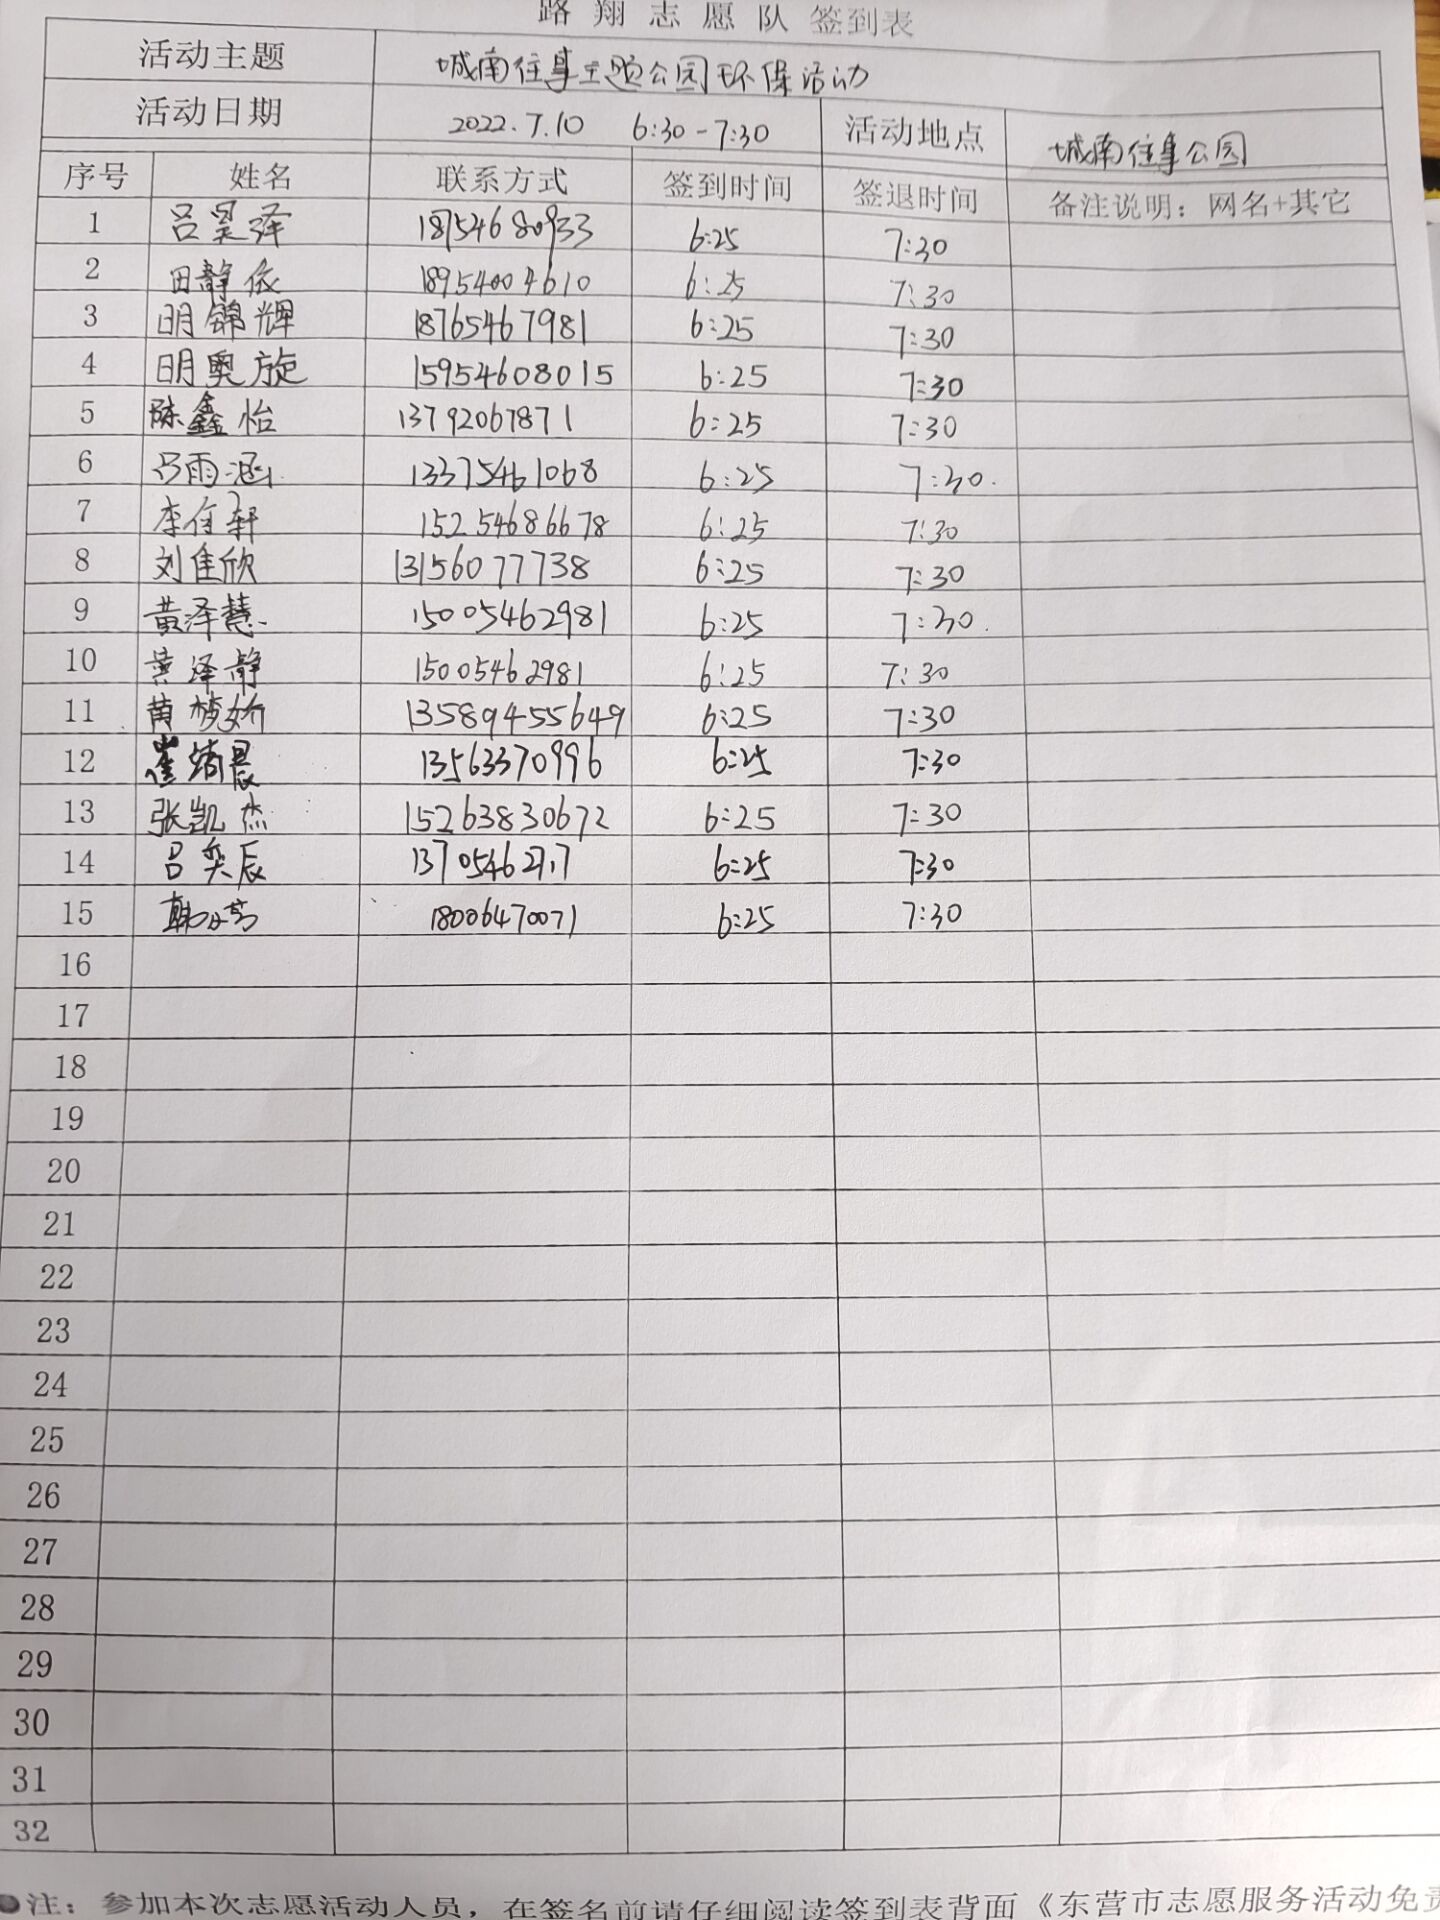 路翔志愿队 签到表
活动主题 城南往事主题公园环保活动
活动日期 2022.7.10 6:30-7:30 活动地点 城南往事公园
序号 姓名 联系方式 签到时间 签退时间 备注说明：网名+其它
1 吕昊泽 18754680933 6:25 7:30
2 田静依 18954004610 6:25 7:30
3 明锦辉 18765467981 6:25 7:30
4 明奥旋 15954608015 6:25 7:30
5 陈鑫怡 13792067871 6:25 7:30
6 吕雨涵 13375461068 6:25 7:30.
7 李 轩 15254686678 6:25 7:30
8 刘佳欣 13156077738 6:25 7:30
9 黄泽慧 15005462981 6:25 7:30.
10 黄泽静 15005462981 6:25 7:30
11 黄梦娇 13589455649 6:25 7:30
12 崔 晨 13563370996 6:25 7:30
13 张凯杰 15263830672 6:25 7:30
14 吕奕辰 6:25 7:30
15 韩 18006470071 6:25 7:30
16
17
18
19
20
21
22
23
24
25
26
27
28
29
30
31
32
●注：参加本次志愿活动人员，在签名前请仔细阅读签到表背面《东营市志愿服务活动免责